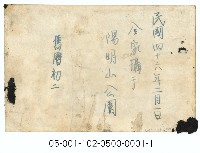 民國四十六年二月一日
全家攝于
陽明山公園
舊曆初二
05-001-02-0503-0001-1